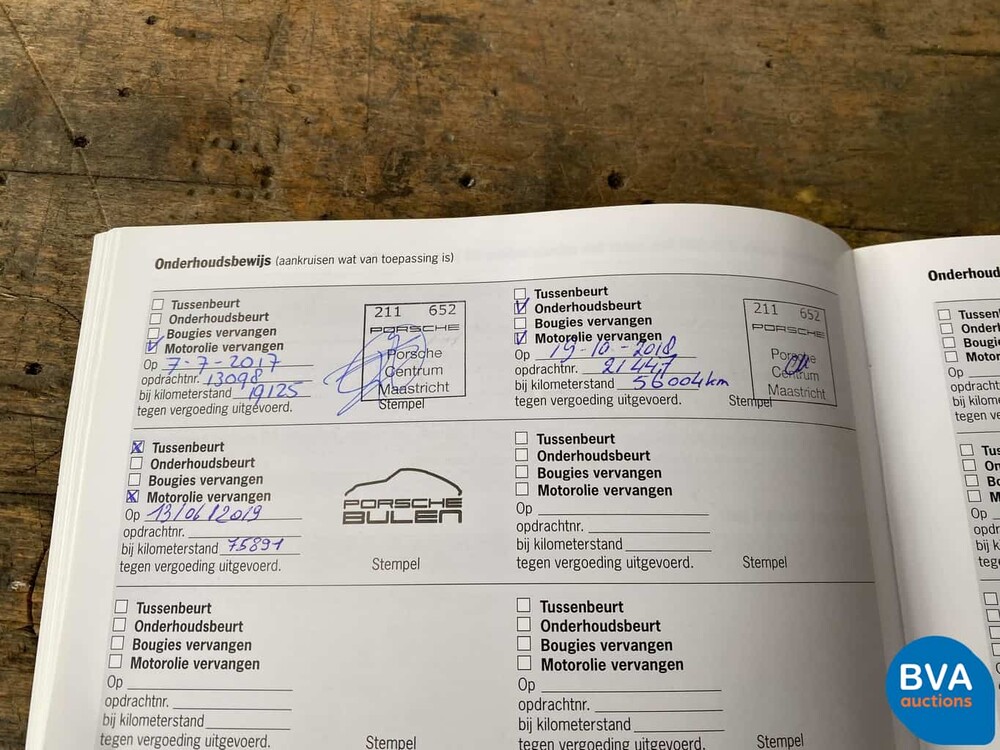 Onderhoudsbewijs (aankruisen wat van toepassing is)
Tussenbeurt
Onderhoudsbeurt
Bougies vervangen
Motorolie vervangen
Op 7-7-2017
opdrachtnr. 13098
bij kilometerstand 19125
tegen vergoeding uitgevoerd.
211 652
PORSCHE
Porsche
Centrum
Maastricht
Stempel
Tussenbeurt
Onderhoudsbeurt
Bougies vervangen
Motorolie vervangen
Op 19-10-2018
opdrachtnr. 21447
bij kilometerstand 56004km
tegen vergoeding uitgevoerd.
211 652
PORSCHE
Porsche
Centrum
Maastricht
Stempel
Tussenbeurt
Onderhoudsbeurt
Bougies vervangen
Motorolie vervangen
Op 13/06/2019
opdrachtnr.
bij kilometerstand 75891
tegen vergoeding uitgevoerd.
PORSCHE
BULEN
Stempel
Tussenbeurt
Onderhoudsbeurt
Bougies vervangen
Motorolie vervangen
Op
opdrachtnr.
bij kilometerstand
tegen vergoeding uitgevoerd.
Stempel
Tussenbeurt
Onderhoudsbeurt
Bougies vervangen
Motorolie vervangen
Op
opdrachtnr.
bij kilometerstand
tegen vergoeding uitgevoerd.
Stempel
Tussenbeurt
Onderhoudsbeurt
Bougies vervangen
Motorolie vervangen
Op
opdrachtnr.
bij kilometerstand
tegen vergoeding uitgevoerd.
Stempel
BVA
auctions